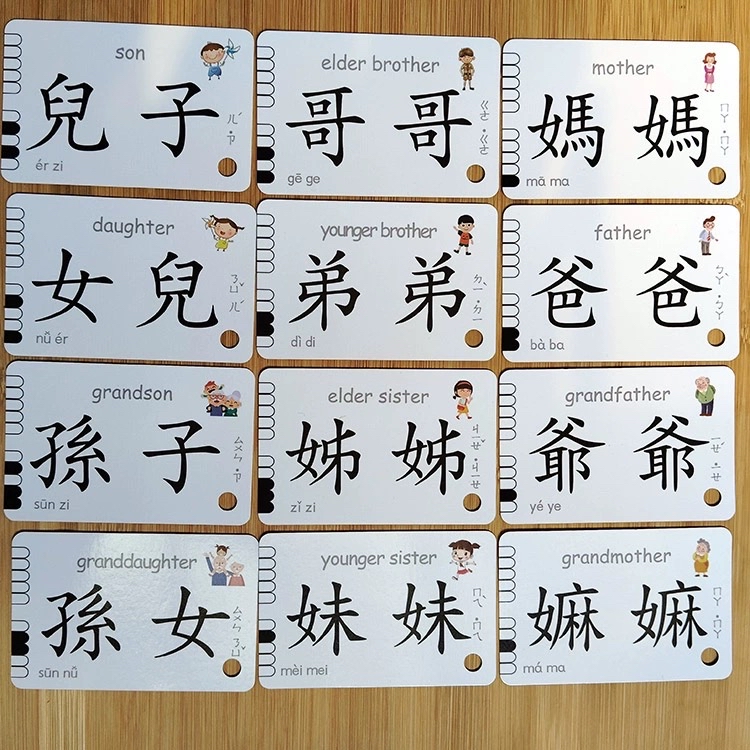 son
兒子
ㄦˊ ˙ㄗ
ér zi
elder brother
哥哥
ㄍㄜ ˙ㄍㄜ
gē ge
mother
媽媽
ㄇㄚ ˙ㄇㄚ
mā ma
daughter
女兒
ㄋㄩˇ ㄦˊ
nǚ ér
younger brother
弟弟
ㄉㄧˋ ˙ㄉㄧ
dì di
father
爸爸
ㄅㄚˋ ˙ㄅㄚ
bà ba
grandson
孫子
ㄙㄨㄣ ˙ㄗ
sūn zi
elder sister
姊姊
ㄐㄧㄝˇ ˙ㄐㄧㄝ
zǐ zi
grandfather
爺爺
ㄧㄝˊ ˙ㄧㄝ
yé ye
granddaughter
孫女
ㄙㄨㄣ ㄋㄩˇ
sūn nǚ
younger sister
妹妹
ㄇㄟˋ ˙ㄇㄟ
mèi mei
grandmother
嫲嫲
ㄇㄚˊ ˙ㄇㄚ
má ma